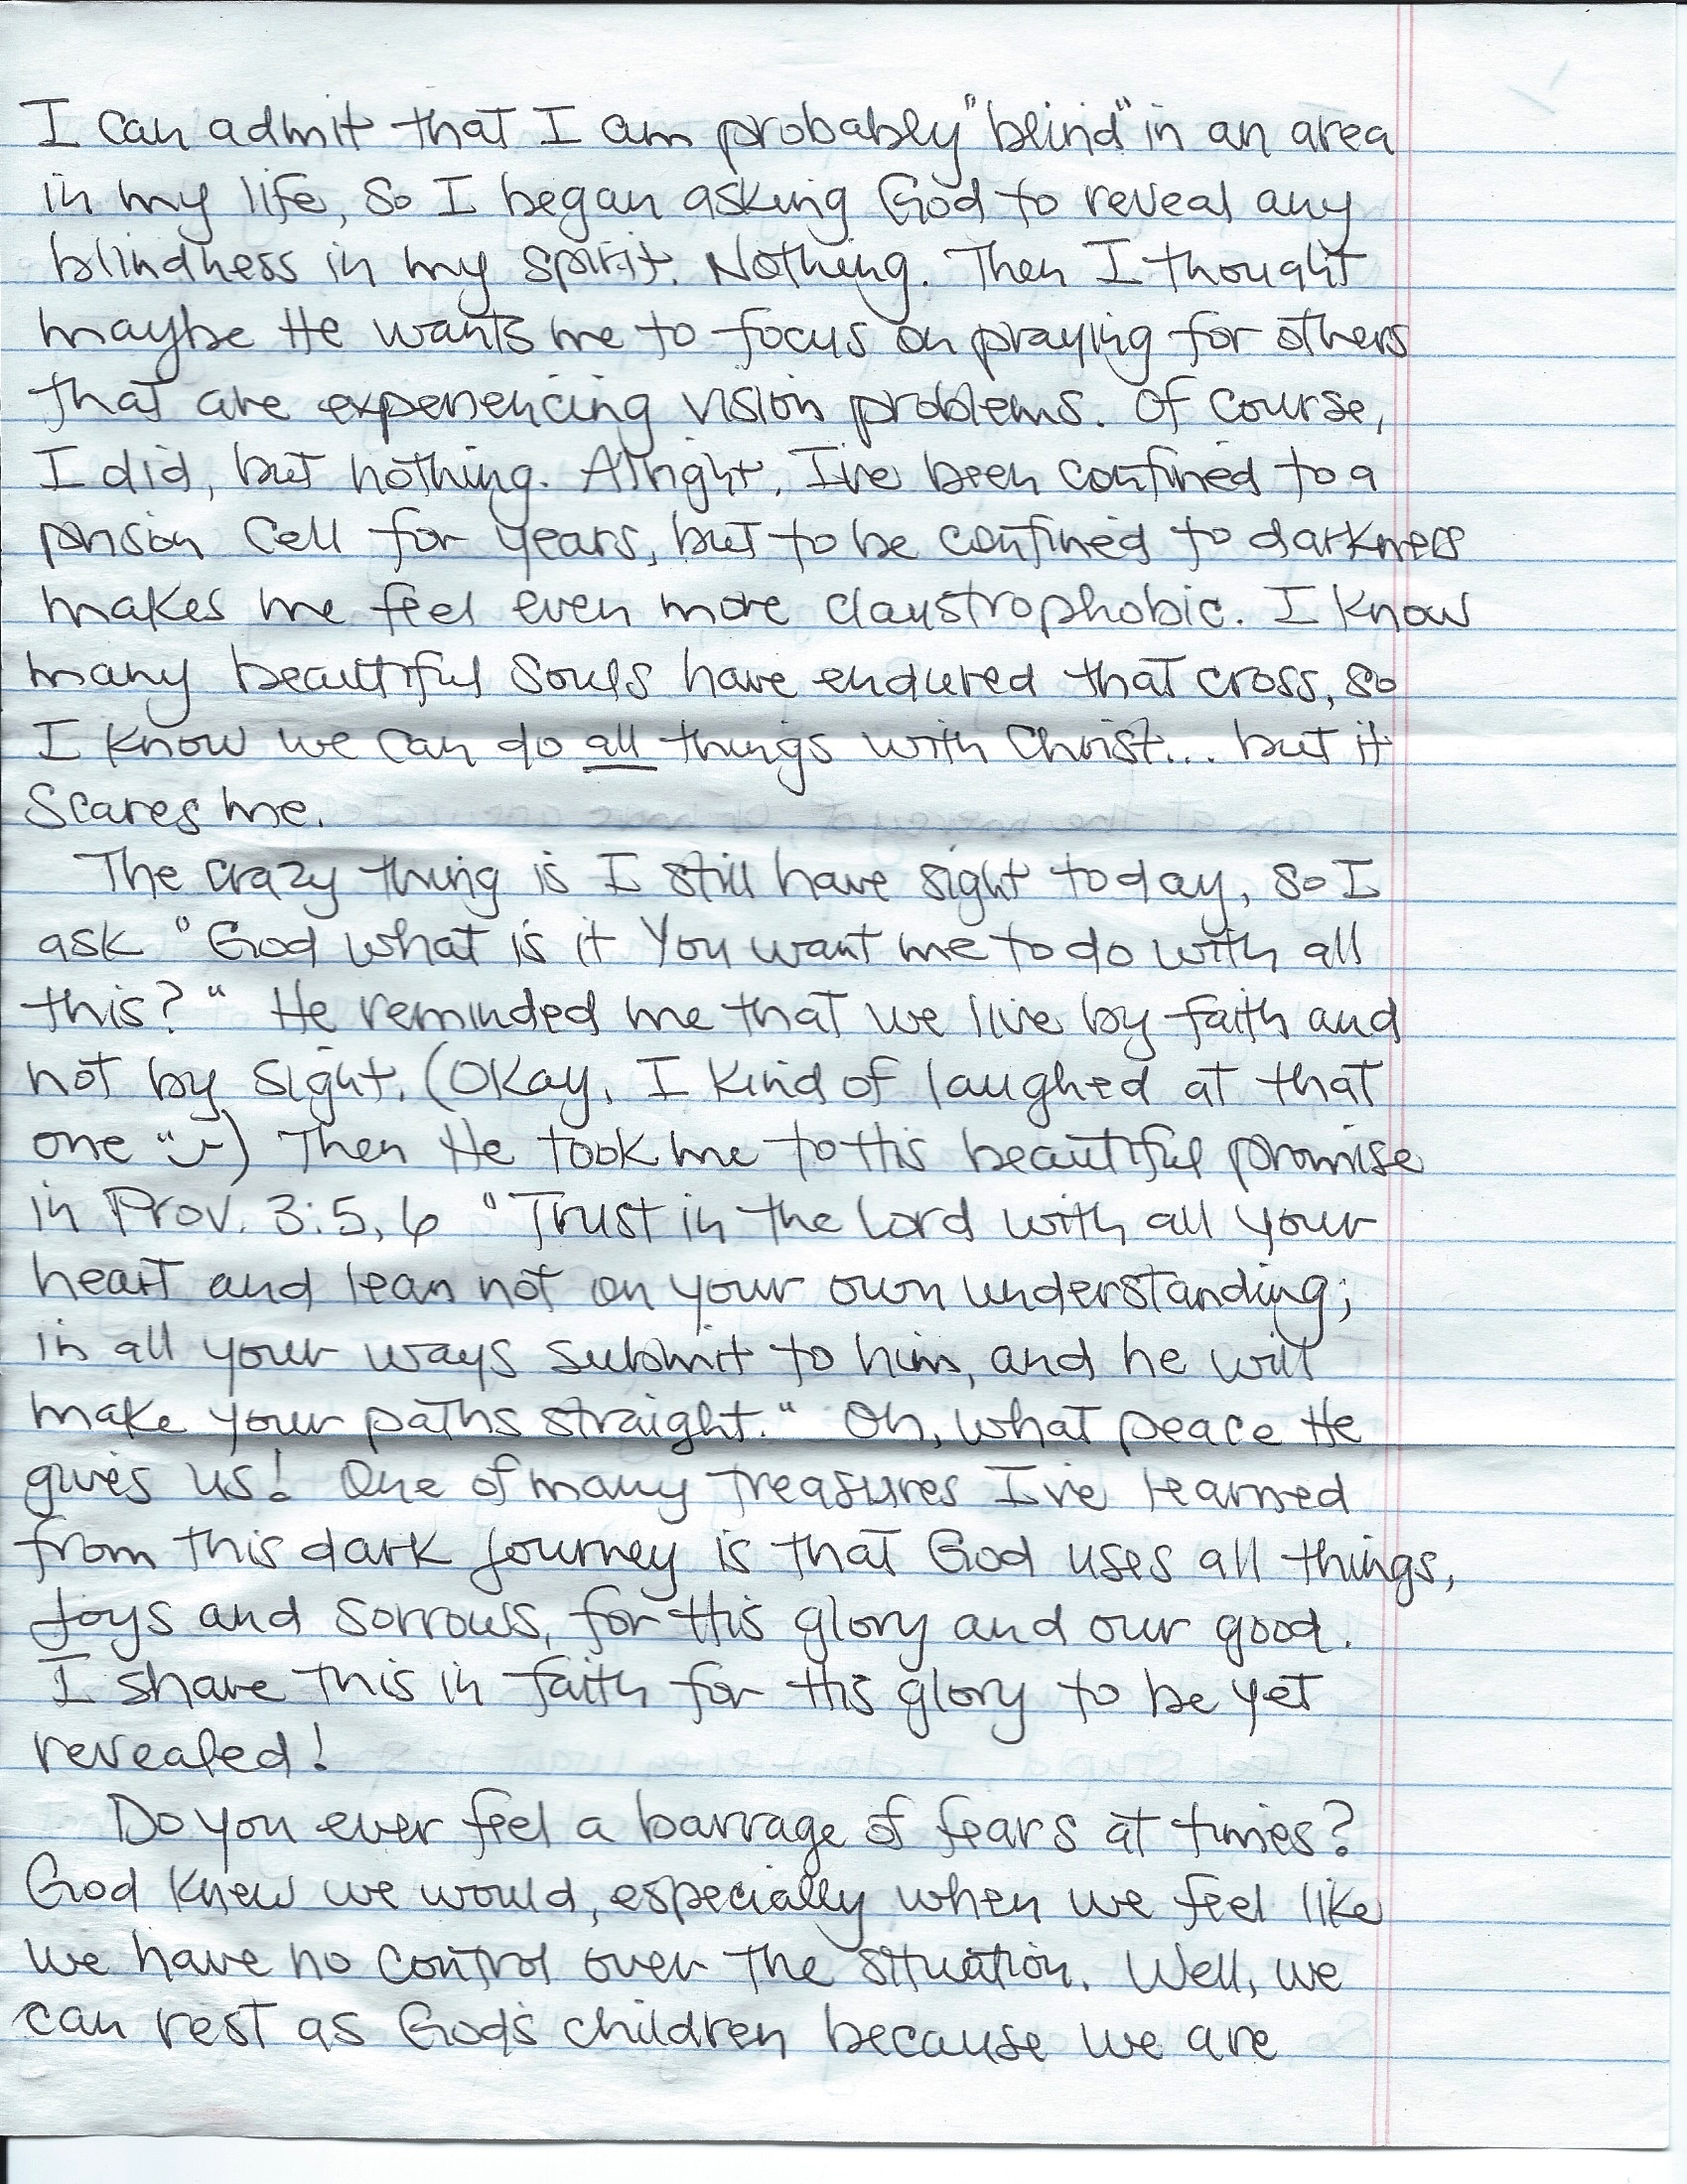 I can admit that I am probably "blind" in an area
in my life, so I began asking God to reveal any
blindness in my spirit. Nothing. Then I thought
maybe He wants me to focus on praying for others
that are experiencing vision problems. Of course,
I did, but nothing. Alright, I've been confined to a
prison cell for years, but to be confined to darkness
makes me feel even more claustrophobic. I know
many beautiful souls have endured that cross, so
I know we can do all things with Christ... but it
scares me.
The crazy thing is I still have sight today, so I
ask "God what is it You want me to do with all
this?" He reminded me that we live by faith and
not by sight. (Okay, I kind of laughed at that
one ":-) Then He took me to His beautiful promise
in Prov. 3:5,6 "Trust in the Lord with all your
heart and lean not on your own understanding;
in all your ways submit to him, and he will
make your paths straight." Oh, what peace He
gives us! One of many treasures I've learned
from this dark journey is that God uses all things,
joys and sorrows, for His glory and our good.
I share this in faith for His glory to be yet
revealed!
Do you ever feel a barrage of fears at times?
God knew we would, especially when we feel like
we have no control over the situation. Well, we
can rest as God's children because we are